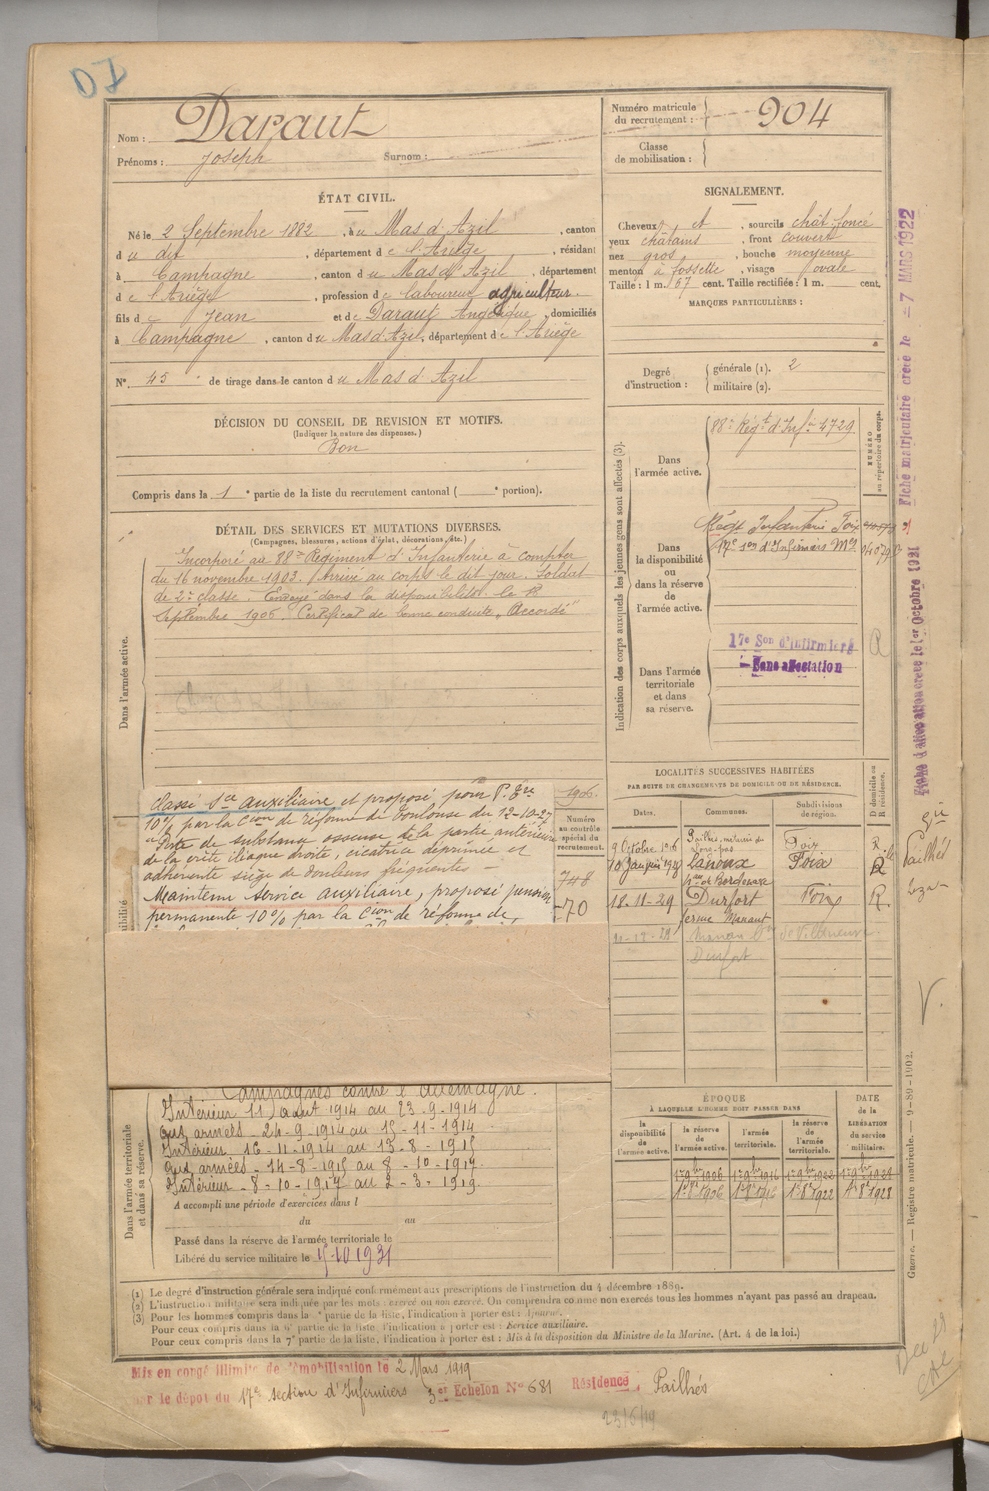 DI
Nom : Daraut
Prénoms : Joseph Surnom :
Numéro matricule du recrutement : 904
Classe de mobilisation :
ÉTAT CIVIL.
Né le 2 Septembre 1882, à u Mas d'Azil, canton
d u dit, département d e l'Ariège, résidant
à Campagne, canton d u Mas d'Azil, département
d e l'Ariège, profession d e laboureur agriculteur.
fils d e Jean et d e Daraut Angélique, domiciliés
à Campagne, canton d u Mas d'Azil, département d e l'Ariège
N° 45 de tirage dans le canton d u Mas d'Azil
SIGNALEMENT.
Cheveux et, sourcils chât foncé
yeux châtains, front couvert
nez gros, bouche moyenne
menton à fossette, visage ovale
Taille : 1 m. 67 cent. Taille rectifiée : 1 m. cent.
MARQUES PARTICULIÈRES :
Degré d'instruction : générale (1). 2
militaire (2).
DÉCISION DU CONSEIL DE REVISION ET MOTIFS.
(Indiquer la nature des dispenses.)
Bon
Compris dans la 1e partie de la liste du recrutement cantonal ( e portion).
DÉTAIL DES SERVICES ET MUTATIONS DIVERSES.
(Campagnes, blessures, actions d'éclat, décorations, etc.)
Dans l'armée active.
Incorporé au 88e Régiment d'Infanterie à compter
du 16 novembre 1903. Arrivé au corps le dit jour. Soldat
de 2e classe. Envoyé dans la disponibilité le
Septembre 1906. Certificat de bonne conduite "Accordé"
classé Sce auxiliaire et proposé pour P.
10% par la Cion de réforme de Toulouse du 12-10-27
Perte de substance osseuse de la partie antérieure
de la crête iliaque droite, cicatrice déprimée et
adhérente siège de douleurs fréquentes
Maintenu service auxiliaire, proposé pension
permanente 10% par la Cion de réforme de
Numéro au contrôle spécial du recrutement.
748
70
Dans l'armée territoriale et dans sa réserve.
Campagnes contre l'Allemagne.
Intérieur 11 août 1914 au 23-9-1914.
aux armées - 24-9-1914 au 15-11-1914
Intérieur - 16-11-1914 au 13-8-1915
aux armées - 14-8-1915 au 8-10-1917.
Intérieur - 8-10-1917 au 2-3-1919.
A accompli une période d'exercices dans l
du au
Passé dans la réserve de l'armée territoriale le
Libéré du service militaire le 15-10 1931
Indication des corps auxquels les jeunes gens sont affectés (3).
NUMÉRO au répertoire du corps.
Dans l'armée active.
88e Régt d'Infie 4729
Dans la disponibilité ou dans la réserve de l'armée active.
Régt Infanterie Foix
17e son d'Infirmiers Mres
Dans l'armée territoriale et dans sa réserve.
17e Son d'Infirmiers
Sans affectation
LOCALITÉS SUCCESSIVES HABITÉES
PAR SUITE DE CHANGEMENTS DE DOMICILE OU DE RÉSIDENCE.
Dates. Communes. Subdivisions de région. D domicile ou R résidence.
9 Octobre 1916 Pailhès, métairie de Foix R
10 Janvier 1928 Lanoux Foix R
18-11-29 Durfort Foix R.
ferme Menaut
Durfort
ÉPOQUE
À LAQUELLE L'HOMME DOIT PASSER DANS
la disponibilité de l'armée active. la réserve de l'armée active. l'armée territoriale. la réserve de l'armée territoriale. DATE de la LIBÉRATION du service militaire.
1er 9bre 1906 1er 9bre 1916 1er 9bre 1922 1er 9bre 1928
1er 8bre 1906 1er 8bre 1916 1er 8bre 1922 1er 8bre 1928
Fiche matriculaire créée le - 7 MARS 1922
Fiche d'affectation créée le 1er Octobre 1921
Pailhès
V.
Guerre. — Registre matricule. — 9-89-1902.
(1) Le degré d'instruction générale sera indiqué conformément aux prescriptions de l'instruction du 4 décembre 1889.
(2) L'instruction militaire sera indiquée par les mots : exercé ou non exercé. On comprendra comme non exercés tous les hommes n'ayant pas passé au drapeau.
(3) Pour les hommes compris dans la e partie de la liste, l'indication à porter est : Ajourné.
Pour ceux compris dans la 6e partie de la liste, l'indication à porter est : Service auxiliaire.
Pour ceux compris dans la 7e partie de la liste, l'indication à porter est : Mis à la disposition du Ministre de la Marine. (Art. 4 de la loi.)
Mis en congé illimité de démobilisation le 2 Mars 1919
par le dépôt du 17e section d'Infirmiers 3er Echelon N° 681 Résidence Pailhès
23/6/19